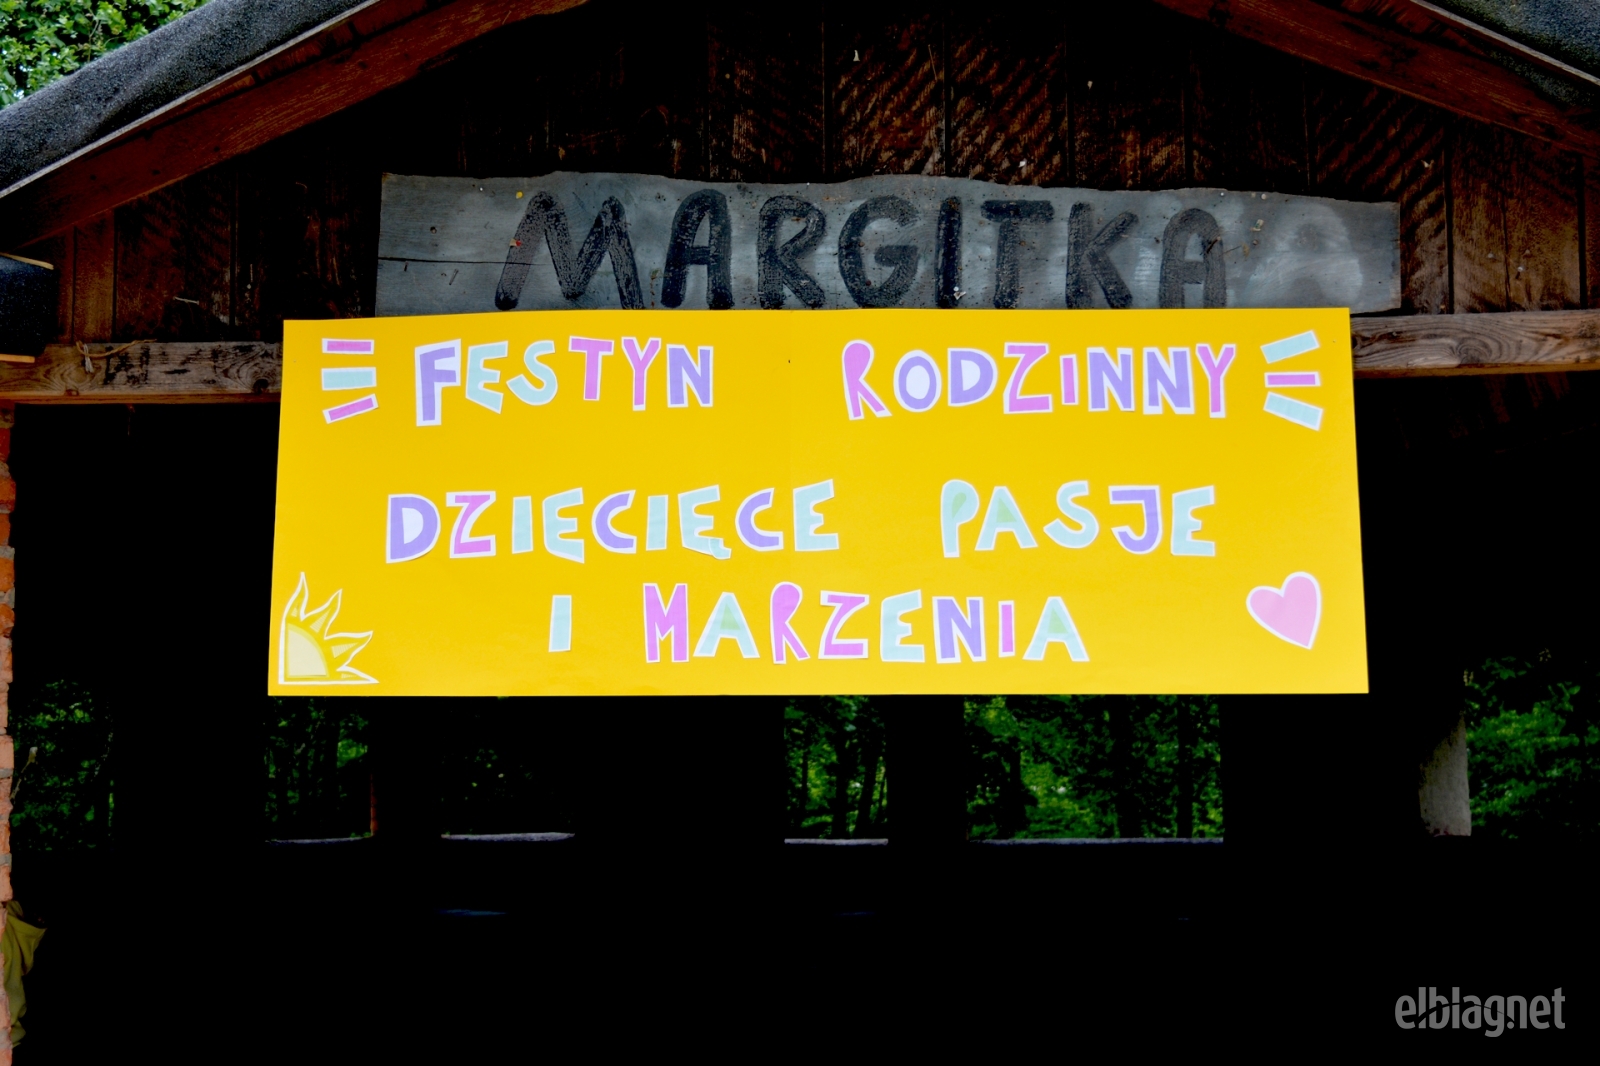 MARGITKA
FESTYN RODZINNY
DZIECIĘCE PASJE
I MARZENIA
elblag.net